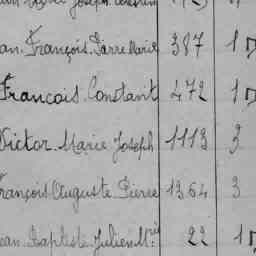 François Pierre Marie 387 1
François Constant 472 1
Victor Marie Joseph 1113 3
François Auguste Pierre 1364 3
Jean Baptiste Julien Mie 22 1